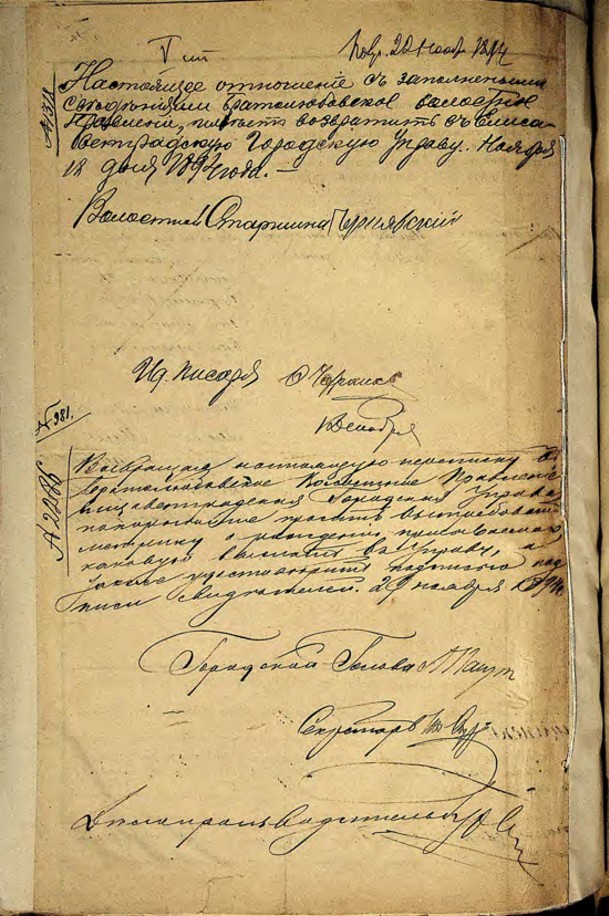 22 нояб. 1894
№ 1311
Настоящее отношеніе съ заполненными
свѣдѣніями Братолюбовское Волостное
Правленіе, имѣетъ возвратить въ Елиса-
ветградскую Городскую Управу. Ноября
18 дня 1894 года. —
Волостной Старшина Чернявский
И. д. писаря
№ 981.
Декабря
№ 2286
Возвращая настоящую переписку въ
Братолюбовское Волостное Правленіе
Елисаветградская Городская Управа
просить
метрику о рожденіи
каковую выслать въ Управу, а
также удостовѣрить подписью под
писи свидѣтелей. 29 ноября 1894
Городской Голова
Секретарь
Дѣлопроизводитель